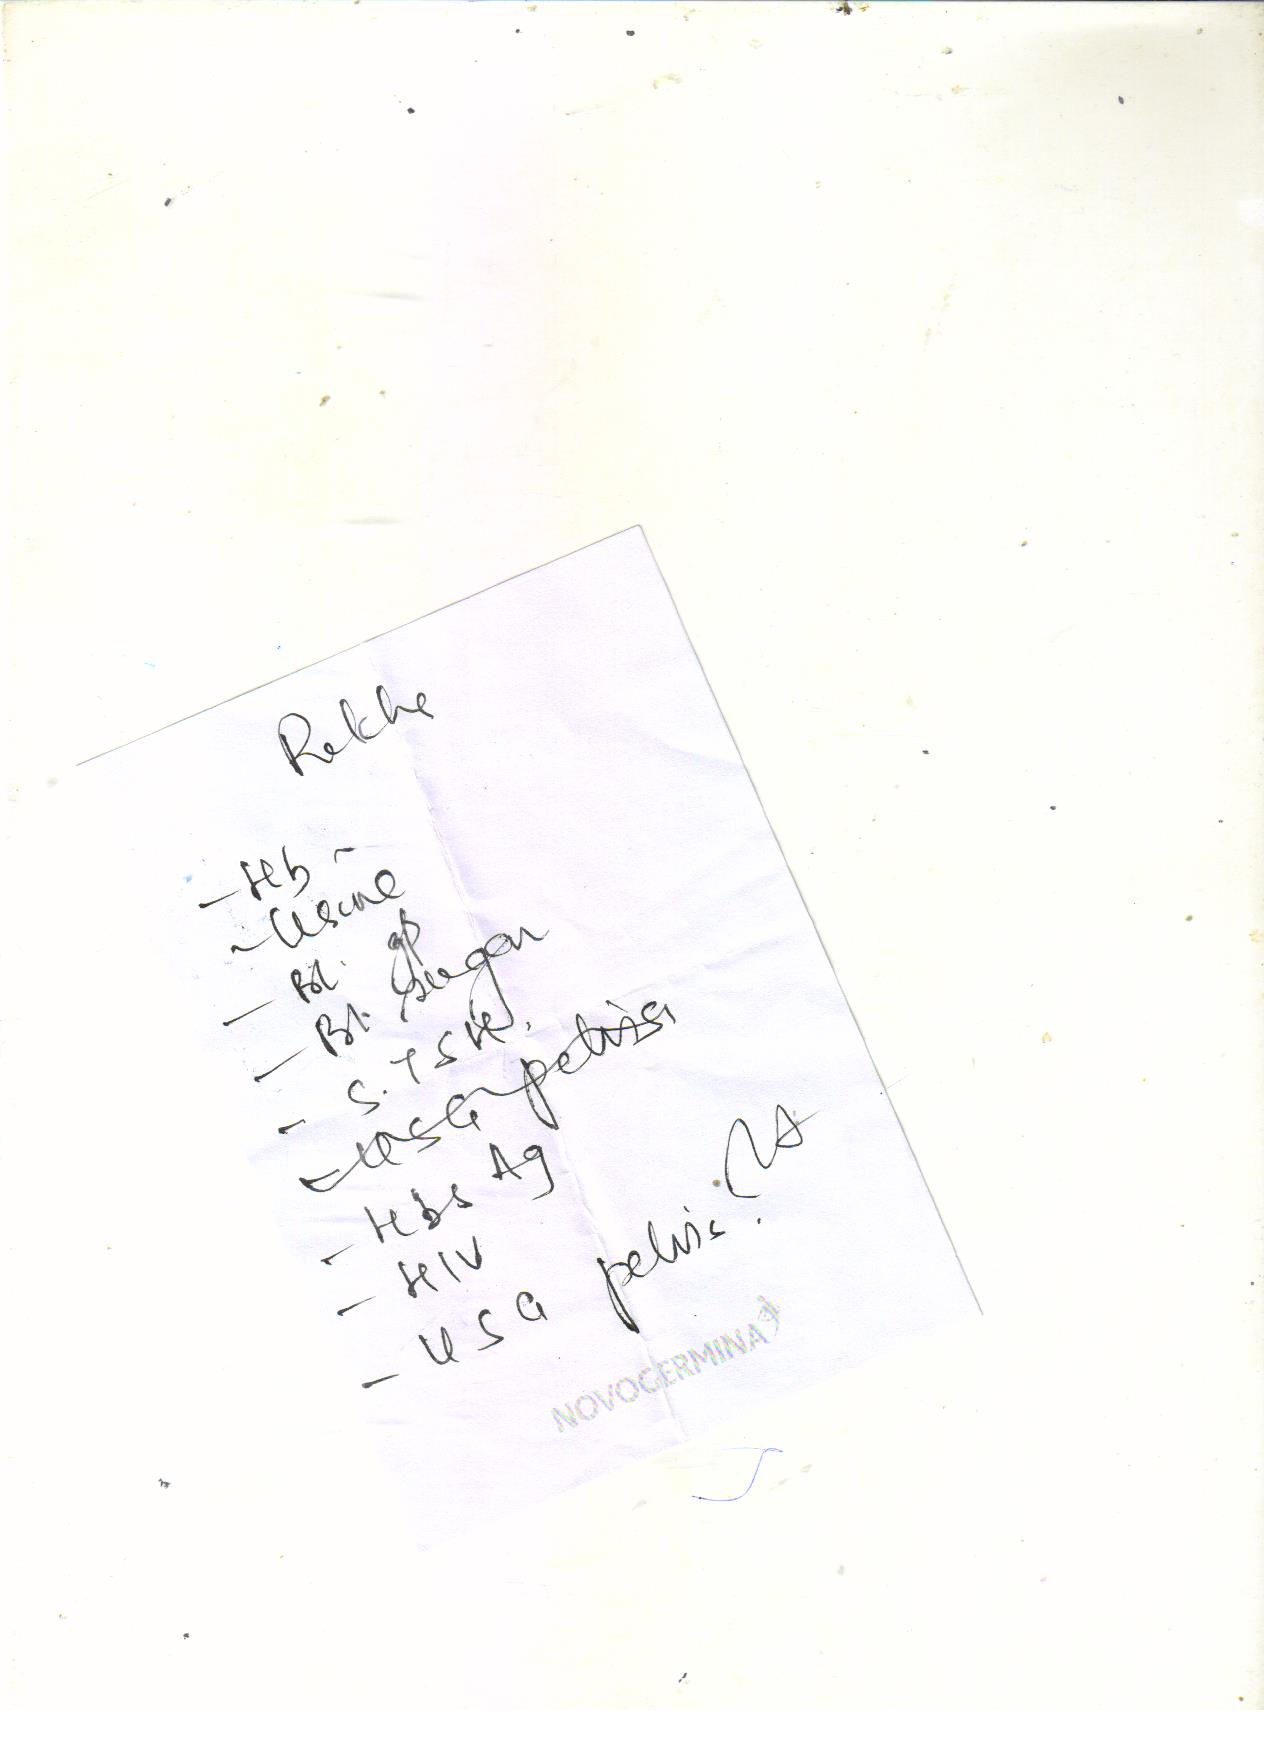 Rekha
- Hb -
- Urine
- Bl. gp
- Bl. Sugar
- S. TSH.
- USG pelvis
- Hbs Ag
- HIV
- USG pelvis.
NOVOGERMINA